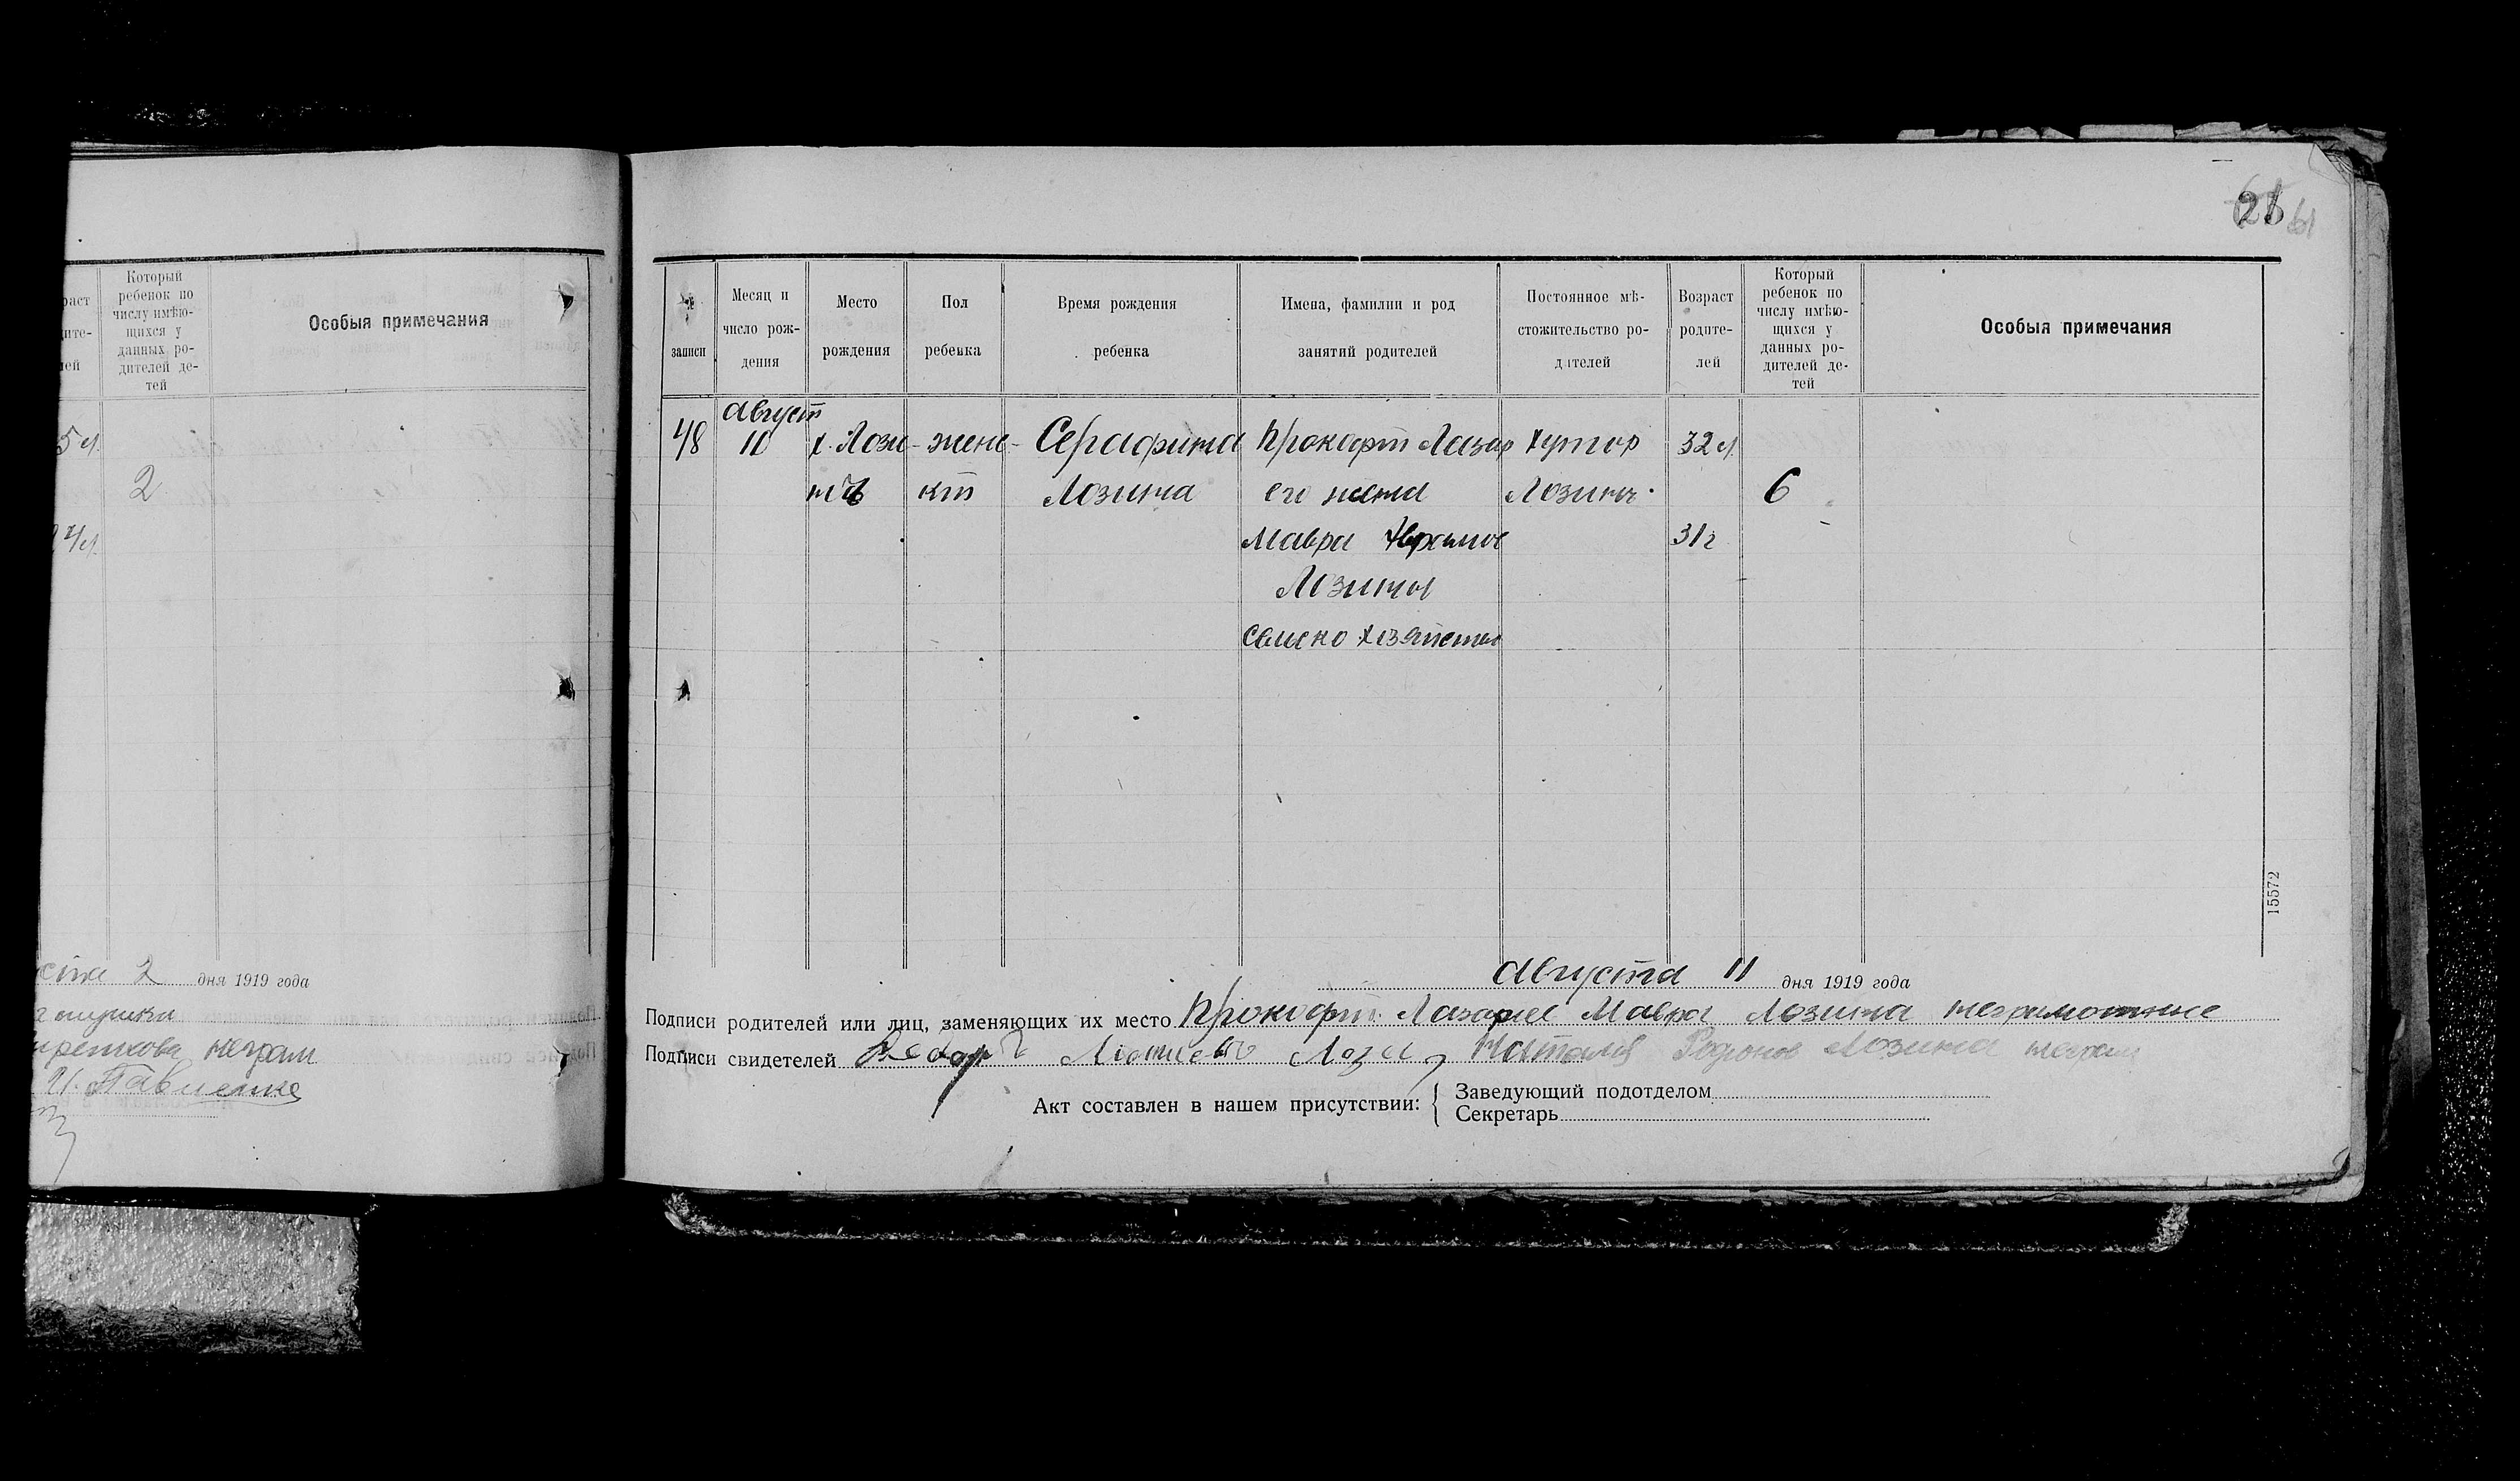 Который
ребенок по
числу имѣю-
щихся у
данных ро-
дителей де-
тей
Особыя примечания
5 л.
2
дня 1919 года
неграм
61
№ записи
Месяц и число рож-дения
Место рождения
Пол ребенка
Время рождения ребенка
Имена, фамилии и род занятий родителей
Постоянное мѣ-стожительство ро-дителей
Возраст родите-лей
Который ребенок по числу имѣю-щихся у данных ро-дителей де-тей
Особыя примечания
Август
48 10 х. Лози- женс- Серафима Прокофт Лазар хутор 32 л.
нъ кт Лозина его жена Лозин 6
Мавра 31 г
Лозины
15572
Августа 11 дня 1919 года
Подписи родителей или лиц, заменяющих их место Прокофт Лазарев Мавра Лозина неграмотные
Подписи свидетелей Наталия Родионов Лозина неграм
Акт составлен в нашем присутствии: { Заведующий подотделом
Секретарь